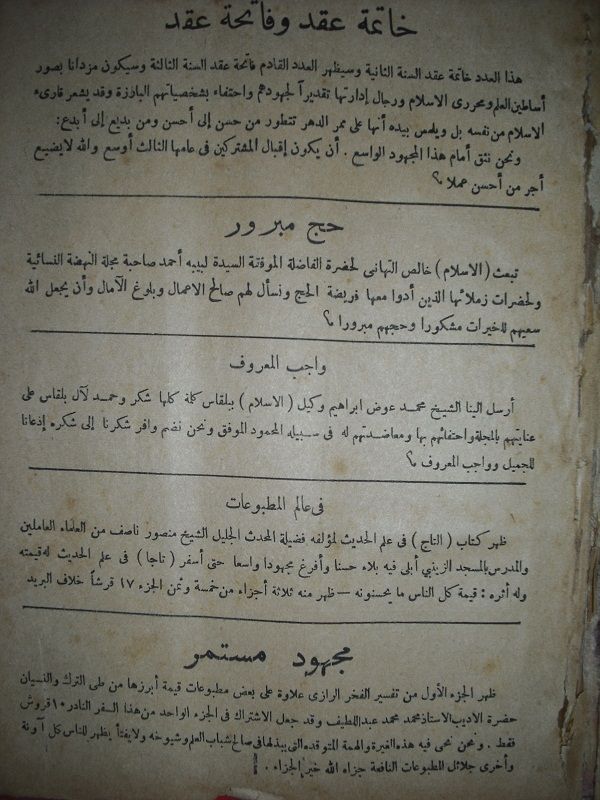 خاتمة عقد وفاتحة عقد
هذا العدد خاتمة عقد السنة الثانية وسيظهر العدد القادم فاتحة عقد السنة الثالثة وسيكون مزدانا بصور
أساطين العلم ومحررى الاسلام ورجال إدارتها تقديرا لجهودهم واحتفاء بشخصياتهم البارزة وقد يشعر قارىء
الاسلام من نفسه بل ويلمس بيده أنها على ممر الدهر تتطور من حسن إلى أحسن ومن بديع إلى أبدع:
ونحن نثق أمام هذا المجهود الواسع . أن يكون إقبال المشتركين فى عامها الثالث أوسع والله لايضيع
أجر من أحسن عملا ؟
حج مبرور
تبعث ( الاسلام ) خالص التهانى لحضرة الفاضلة الموفقة السيدة لبيبه أحمد صاحبة مجلة النهضة النسائية
ولحضرات زملائها الذين أدوا معها فريضة الحج ونسأل لهم صالح الاعمال وبلوغ الآمال وأن يجعل الله
سعيهم للخيرات مشكورا وحجهم مبرورا ؟
واجب المعروف
أرسل الينا الشيخ محمد عوض ابراهيم وكيل ( الاسلام ) ببلقاس كلمة كلها شكر وحمد لآل بلقاس على
عنايتهم بالمجلة واحتفائهم بها ومعاضدتهم له فى سبيله المحمود الموفق ونحن نضم وافر شكرنا إلى شكره إذعانا
للجميل وواجب المعروف ؟
فى عالم المطبوعات
ظهر كتاب ( التاج ) فى علم الحديث لمؤلفه فضيلة المحدث الجليل الشيخ منصور ناصف من العلماء العاملين
والمدرس بالمسجد الزينبي أبلى فيه بلاء حسنا وأفرغ مجهودا واسعا حتى أسفر ( تاجا ) فى علم الحديث له قيمته
وله أثره : قيمة كل الناس ما يحسنونه — ظهر منه ثلاثة أجزاء من خمسة وثمن الجزء ١٧ قرشاً خلاف البريد
مجهود مستمر
ظهر الجزء الأول من تفسير الفخر الرازى علاوة على بعض مطبوعات قيمة أبرزها من طى الترك والنسيان
حضرة الاديب الاستاذ محمد محمد عبد اللطيف وقد جعل الاشتراك فى الجزء الواحد من هذا السفر النادر ١٠ قروش
فقط . ونحن نحى فيه هذه الغيرة والهمة المتوقده التى يبذلها فى صالح شباب العلم وشيوخه ولا يفتأ يظهر للناس كل آونة
وأخرى جلائل المطبوعات النافعة جزاه الله خير الجزاء .